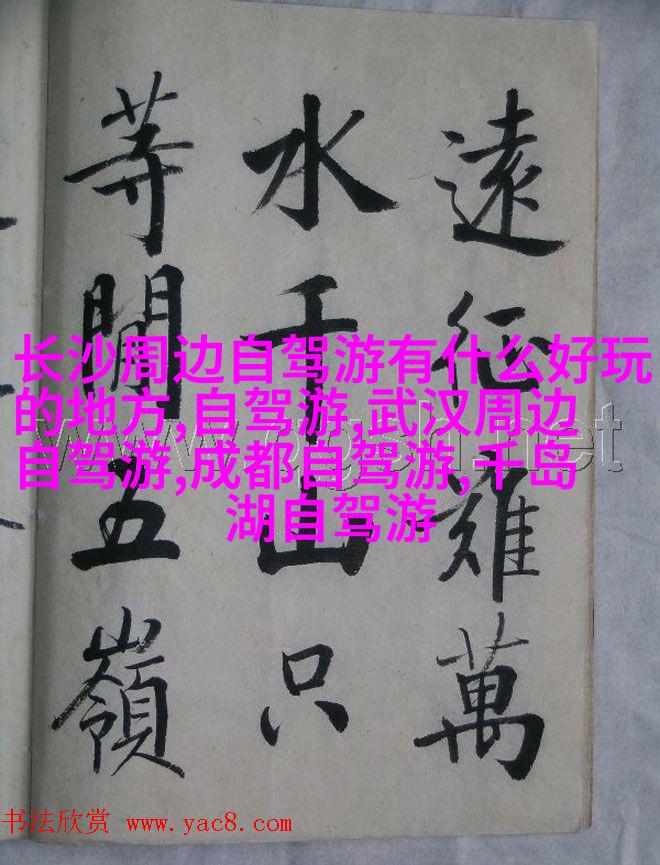 遠征難萬
水千山只
等閒五嶺
长沙周边自驾游有什么好玩
的地方,自驾游,武汉周边
自驾游,成都自驾游,千岛
湖自驾游
书法欣赏 www.yac8.com